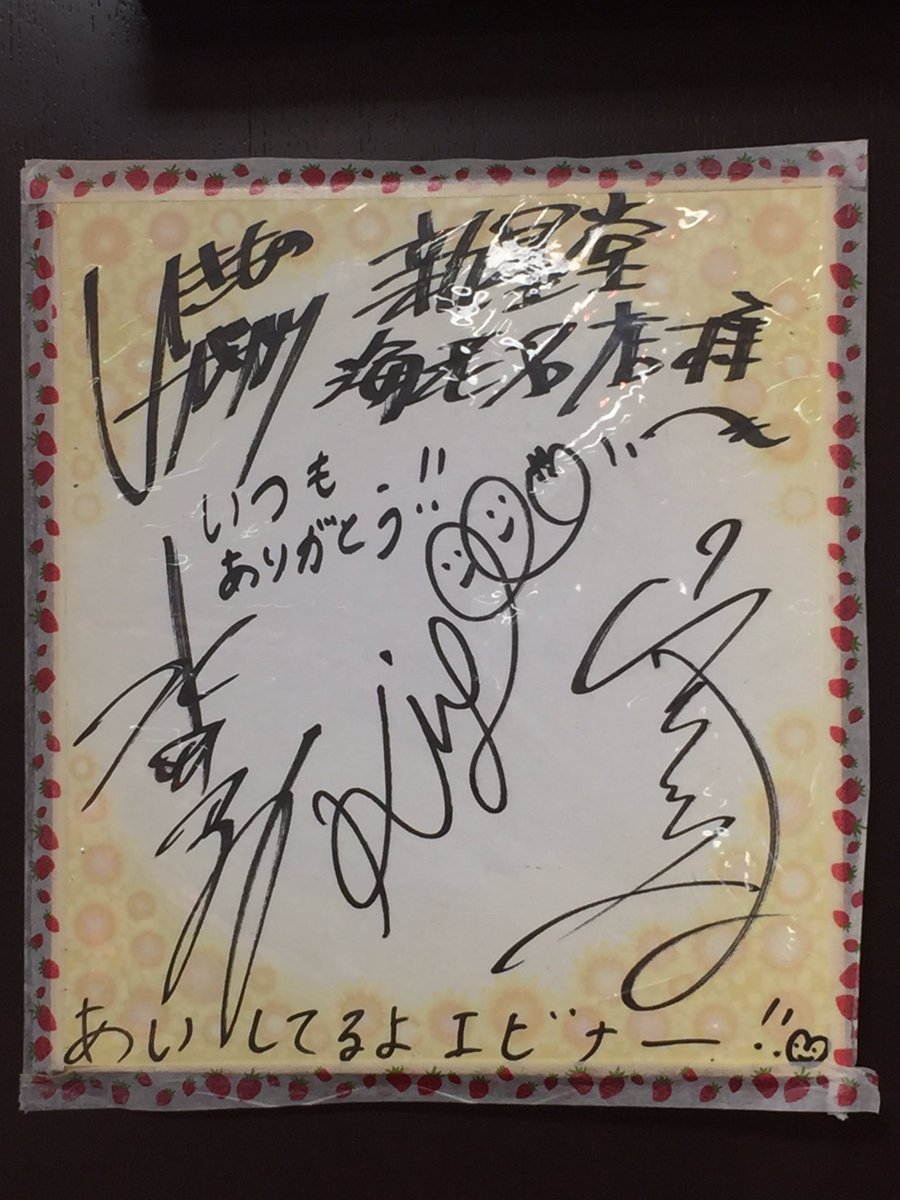 いきものがかり
新星堂
海老名店 様
いつも
ありがとう!!
あいしてるよエビナー!!